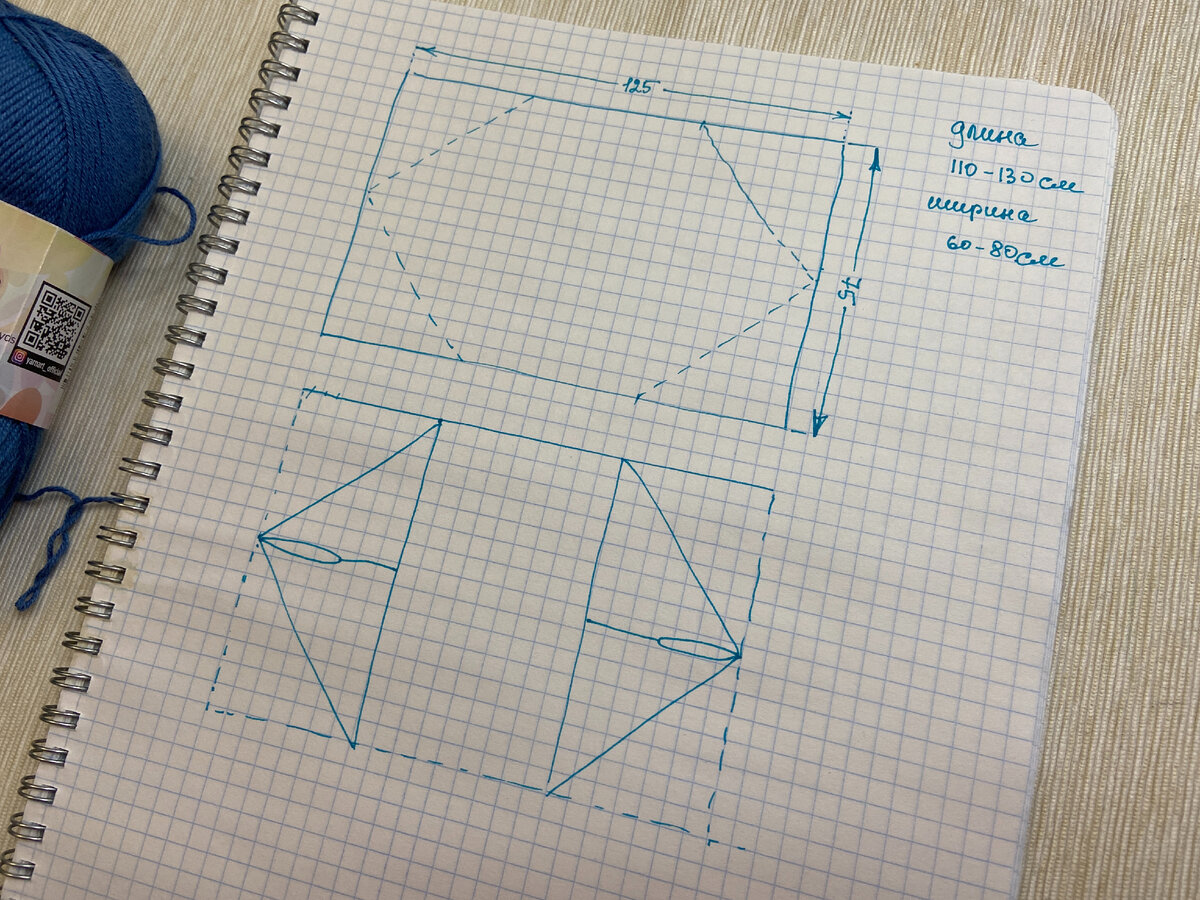 125
длина
110-130см
ширина
60-80см
75
yarnart_official